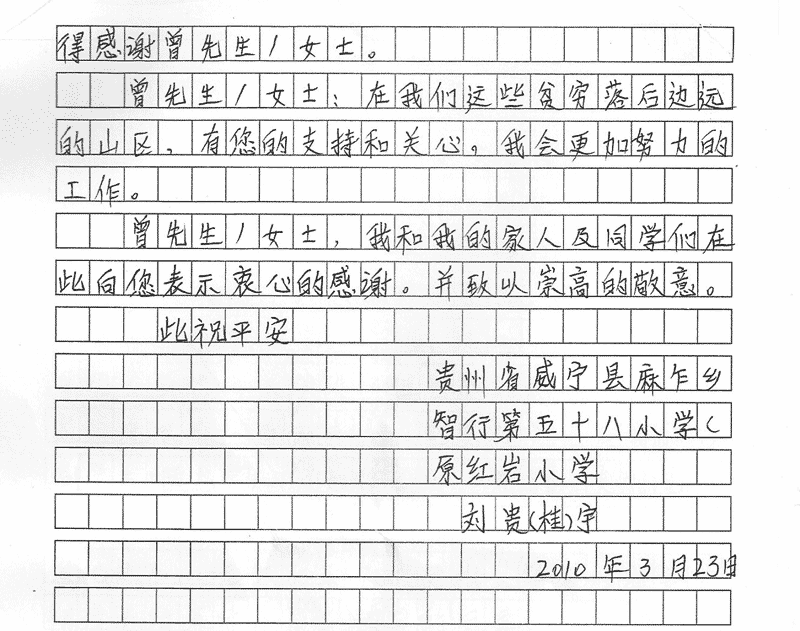 得感谢曾先生/女士。
曾先生/女士：在我们这些贫穷落后边远
的山区，有您的支持和关心，我会更加努力的
工作。
曾先生/女士，我和我的家人及同学们在
此向您表示衷心的感谢。并致以崇高的敬意。
此祝平安
贵州省威宁县麻乍乡
智行第五十八小学（
原红岩小学
刘贵(桂)宇
2010年3月23日